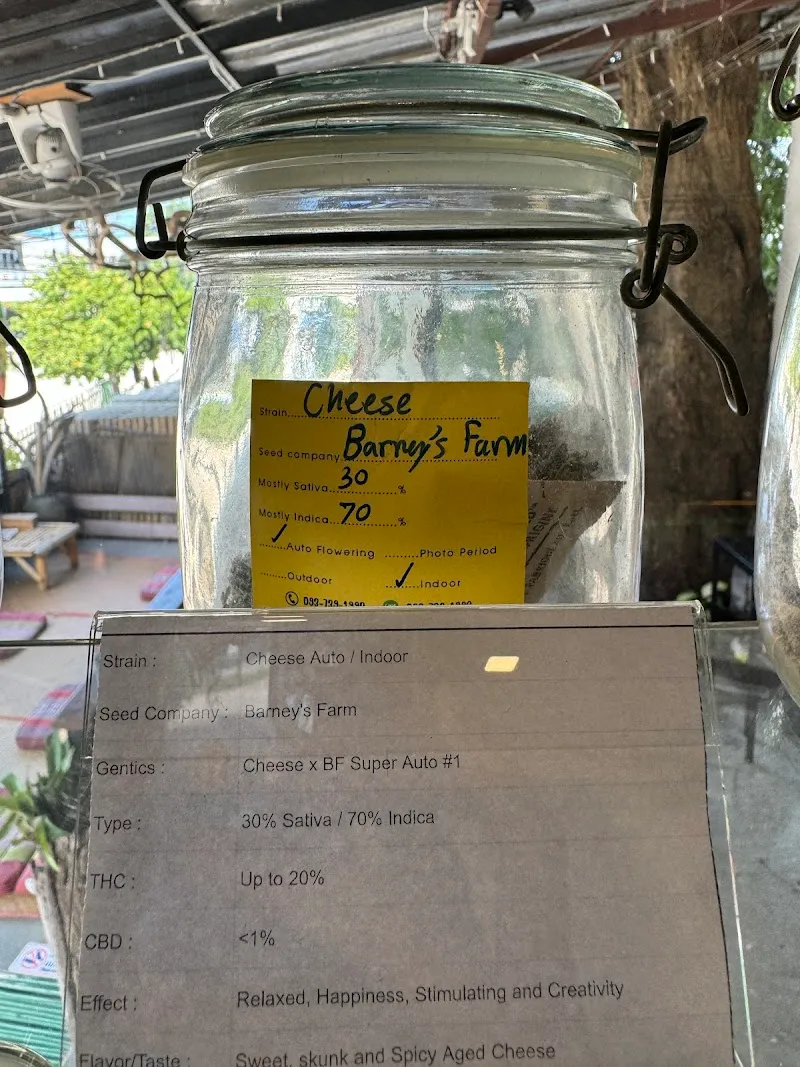 Strain....Cheese
Seed company.Barney's Farm
Mostly Sativa..30....%
Mostly Indica..70....%
✓ Auto Flowering ........Photo Period
.......Outdoor ✓ Indoor
Strain : Cheese Auto / Indoor
Seed Company : Barney's Farm
Gentics : Cheese x BF Super Auto #1
Type : 30% Sativa / 70% Indica
THC : Up to 20%
CBD : <1%
Effect : Relaxed, Happiness, Stimulating and Creativity
Flavor/Taste : Sweet, skunk and Spicy Aged Cheese